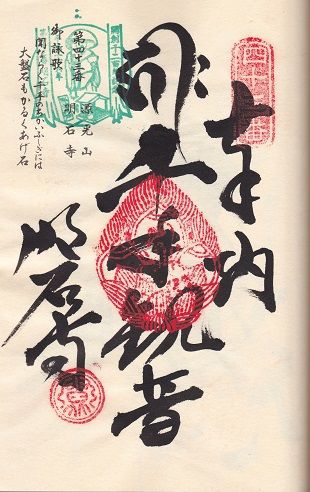 奉納
千手観音
明石寺
第四十三番
源光山
明石寺
御詠歌
聞ならく千手のちかいふしぎには
大盤石もかるくあげ石